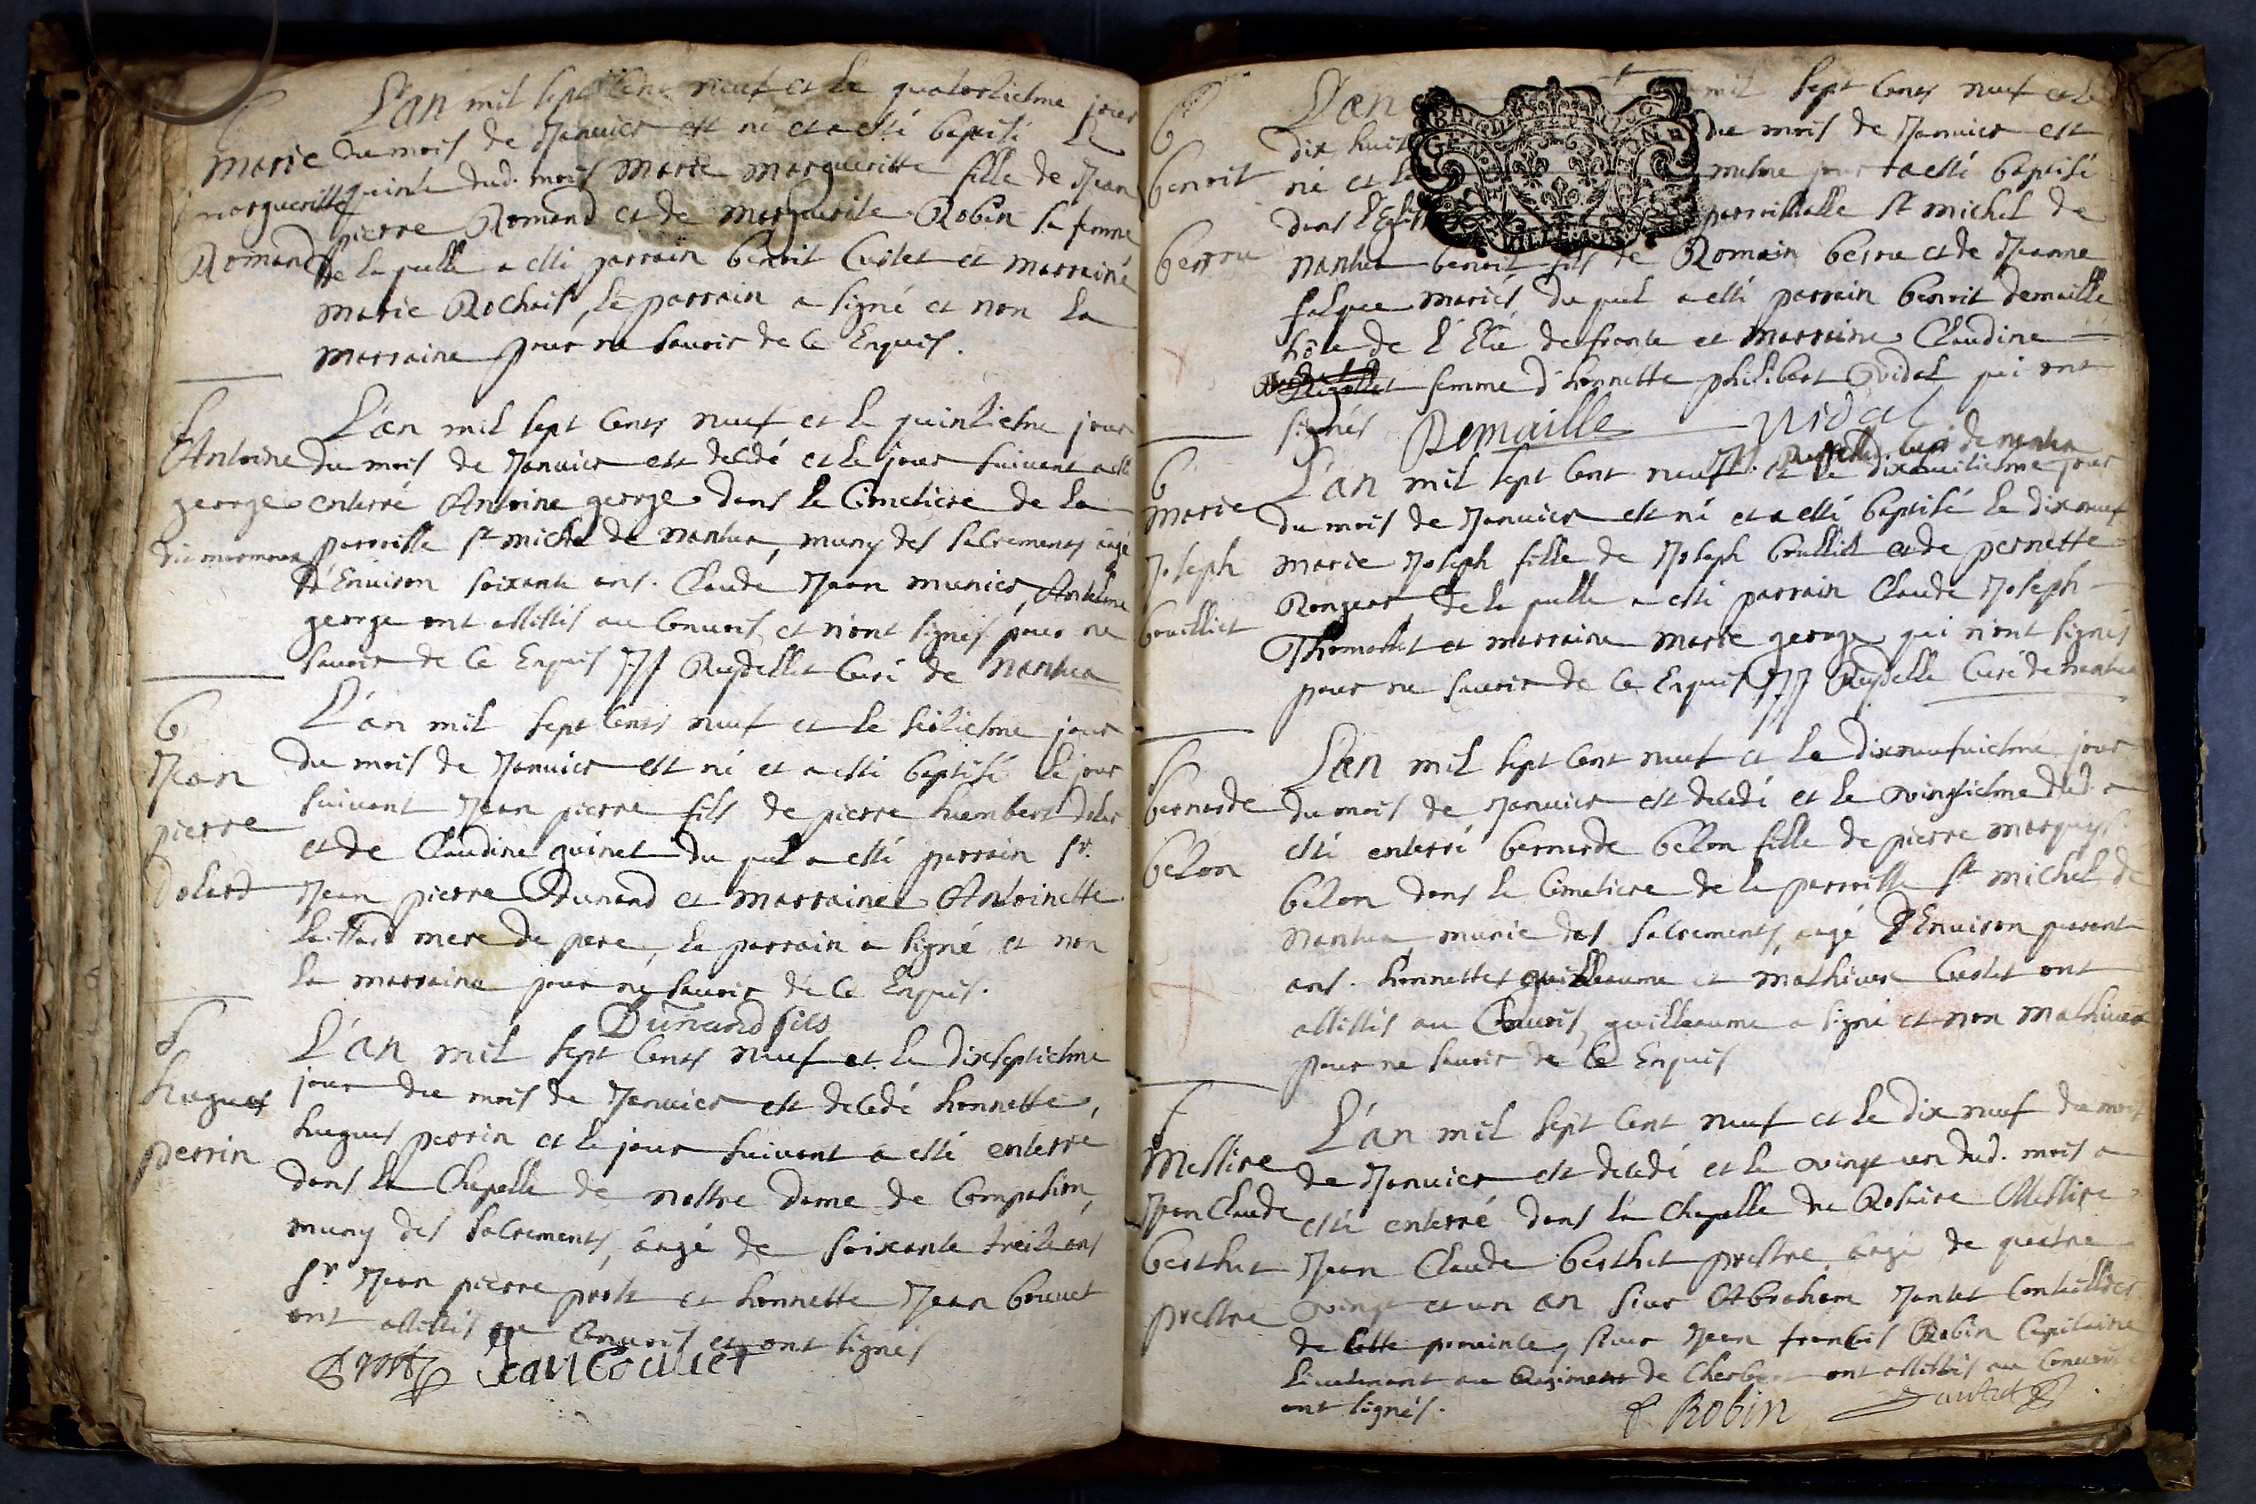 b
marie
margueritte
Romand
L'an mil sept cent neuf et le quatorziesme jour
du mois de Januier est né et a esté baptisé le
quinze dud. mois marie margueritte fille de Jean
pierre Romand et de marguerite Robin sa femme
de laquelle a esté parrain benoit Curtet et marraine
marie Rochais, le parrain a signé et non la
marraine pour ne sauoir de ce Enquis.
S
Antoine
george
dit
L'an mil sept cents neuf et le quinziesme jour
du mois de Januier est decedé et le jour suiuant a esté
enterré Antoine george dans le Cimetiere de la
parroisse St michel de nantua, muny des sacrements aagé
d'Enuiron soixante ans. Claude Jean munier, Anthelme
george ont assistés au Conuois et n'ont signés pour ne
sauoir de ce Enquis JJ Ruydellet Curé de Nantua
b
Jean
pierre
Doler
L'an mil sept cents neuf et le seiziesme jour
du mois de Januier est né et a esté baptisé le jour
suiuant Jean pierre fils de pierre humbert
et de Claudine guinet du quel a esté parrain Sr.
Jean pierre Dunand et marraine Antoinette
mere du pere, le parrain a signé et non
la marraine pour ne sauoir de ce Enquis.
Dunand fils
S
hugues
perrin
L'an mil sept cents neuf et le dixseptiesme
jour du mois de Januier est decedé honnette,
hugues perrin et le jour suiuant a esté enterré
dans la Chapelle de nostre dame de Compassion,
muny des sacrements, aagé de soixante treize ans
Sr Jean pierre prost et honnette Jean bouuet
ont assistés au Conuois et ont signés
Prost Jean Bouuet
b
benoit
berru
L'an mil sept cents neuf et le
dix huit du mois de Januier est
né et le mesme jour a esté baptisé
dans l'Eglise parroissialle St michel de
nantua benoit fils de Romain berru et de Jeanne
falque mariés du quel a esté parrain benoit demaille
hôte de l'Ecu de france et marraine Claudine
femme d'honnette philibert Vidal qui ont
signés Demaille Vidal
JJ. Ruydellet Curé de nantua
b
marie
Joseph
bouilliet
L'an mil sept cent neuf et le dixhuitiesme jour
du mois de Januier est né et a esté baptisé le dixneuf
marie Joseph fille de Joseph boulliet et de pernette
Rongeat de la quelle a esté parrain Claude Joseph
Thomasset et marraine marie george qui n'ont signés
pour ne sauoir de ce Enquis JJ Ruydelle Curé de nantua
S
bernarde
belon
L'an mil sept cent neuf et le dixneufuiesme jour
du mois de Januier est decedé et le vingtiesme dud. a
esté enterré bernarde belon fille de pierre marguys
belon dans le Cimetiere de la parroisse St michel de
Nantua munie des sacrements, aagé d'Enuiron quarante
ans. honnettes guilleaume et mathieu Curtet ont
assistés au Conuois, guilleaume a signé et non mathieu
pour ne sauoir de ce Enquis
S
Messire
Jean Claude
berthet
prestre
L'an mil sept cent neuf et le dix neuf du mois
de Januier est decedé et le vingt un dud. mois a
esté enterré dans la Chapelle du Rosaire Messire
Jean Claude berthet prestre aagé de quatre
vingt et un an sieur Abraham Jantet
de cette prouince, sieur Jean francois Robin Capitaine
Lieutenant au Regiment de ont assistés au Conuois
ont signés.
f Robin Jantet